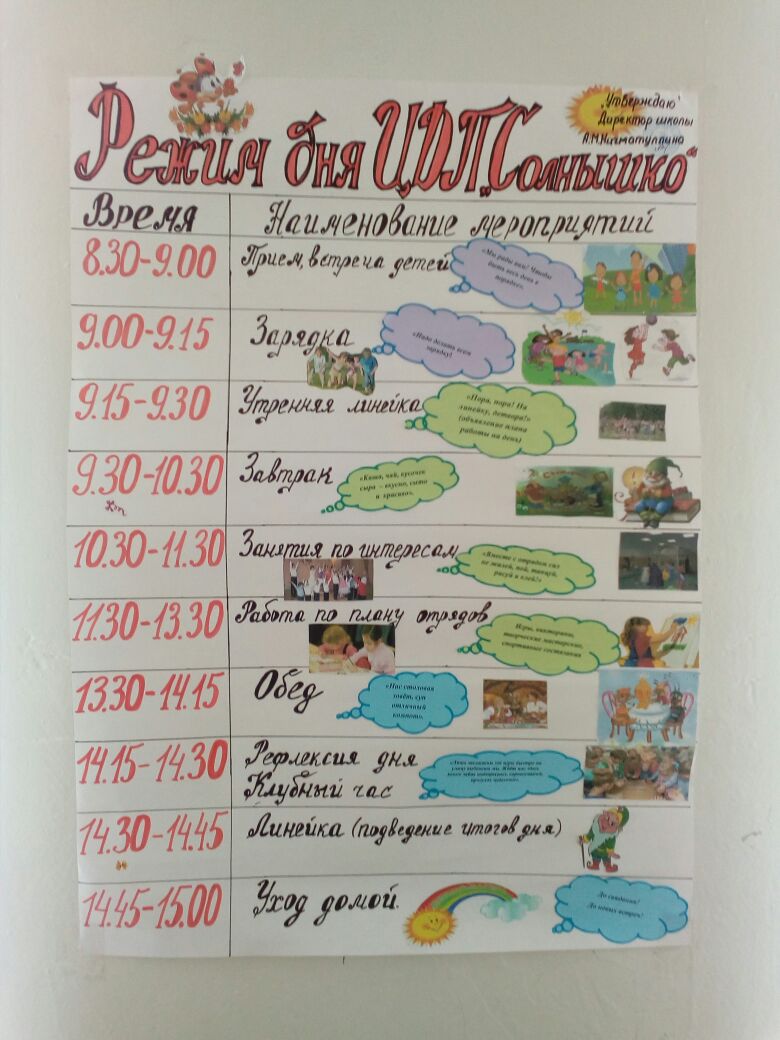 „Утверждаю"
Директор школы
А.М.Нигматуллина
Режим дня ЦДП „Солнышко"
Время Наименование мероприятий
8.30-9.00 Прием, встреча детей
«Мы рады вам! Чтобы
быть весь день в
порядке».
9.00-9.15 Зарядка
«Надо делать всем
зарядку!
9.15-9.30 Утренняя линейка
«Пора, пора! На
линейку, детвора!»
(объявление плана
работы на день)
9.30-10.30 Завтрак
«Каша, чай, кусочек
сыра – вкусно, сытно
и красиво».
10.30-11.30 Занятия по интересам
«Вместе с отрядом сил
не жалей, пой, танцуй,
рисуй и клей!»
11.30-13.30 Работа по плану отрядов
Игры, викторины,
творческие мастерские,
спортивные состязания
13.30-14.15 Обед
«Нас столовая
зовёт, суп
отличный и
компот».
14.15-14.30 Рефлексия дня
Клубный час
14.30-14.45 Линейка (подведение итогов дня)
14.45-15.00 Уход домой.
До свидания!
До новых встреч!